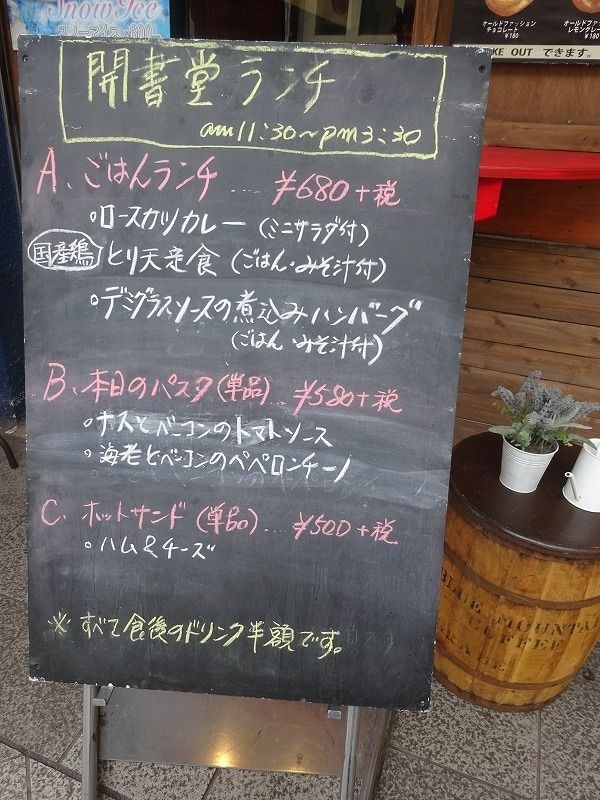 Snow Ice
オールドファッション
チョコレート
¥180
オールドファ
レモングレー
¥180
KE OUT できます。
開書堂ランチ
am11:30~pm3:30
A、ごはんランチ … ¥680+税
。ロースカツカレー (ミニサラダ付)
国産鶏 とり天定食 (ごはん・みそ汁付)
。デミグラスソースの煮込みハンバーグ
(ごはん・みそ汁付)
B、本日のパスタ(単品)… ¥580+税
。ナスとベーコンのトマトソース
。海老とベーコンのペペロンチーノ
C、ホットサンド (単品)… ¥500+税
。ハム&チーズ
※すべて食後のドリンク半額です。
BLUE MOUNTAI
COFFEE